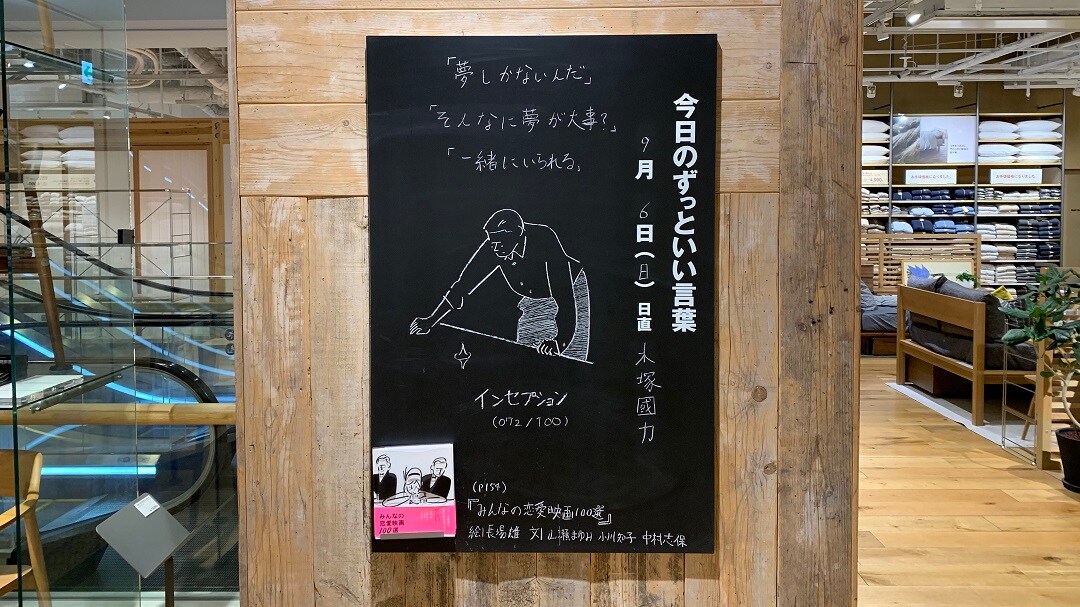 今日のずっといい言葉
9月6日(日) 日直 木塚國力
「夢しかないんだ」
「そんなに夢が大事?」
「一緒にいられる」
インセプション
(072/100)
(P154)
『みんなの恋愛映画100選』
絵|長場雄 文|山瀬まゆみ 小川知子 中村志保
みんなの
恋愛映画
100選